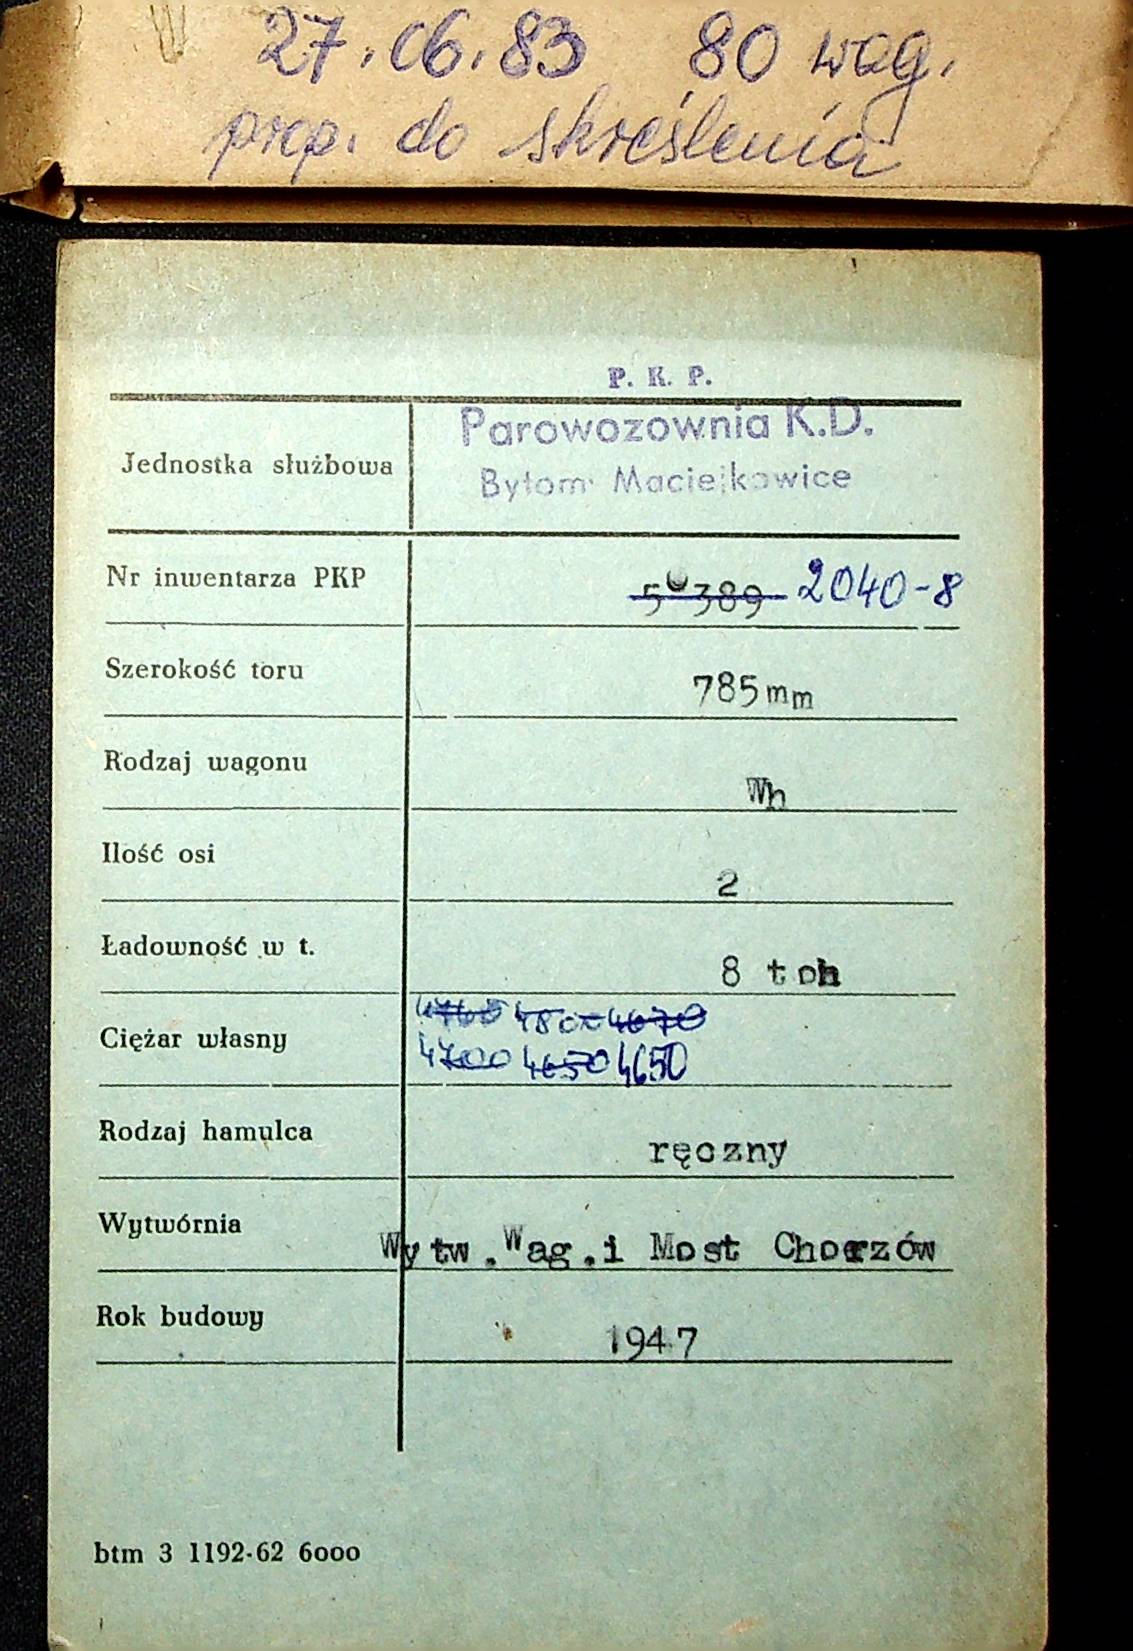 27.06.83 80 wag.
prop. do skreślenia
P. K. P.
Jednostka służbowa Parowozownia K.D.
Bytom Maciejkowice
Nr inwentarza PKP 50389 2040-8
Szerokość toru 785mm
Rodzaj wagonu Wh
Ilość osi 2
Ładowność w t. 8 ton
4760 4800 4670
Ciężar własny 4700 4650 4650
Rodzaj hamulca ręczny
Wytwórnia Wytw.Wag.i Most Chorzów
Rok budowy 1947
btm 3 1192-62 6000